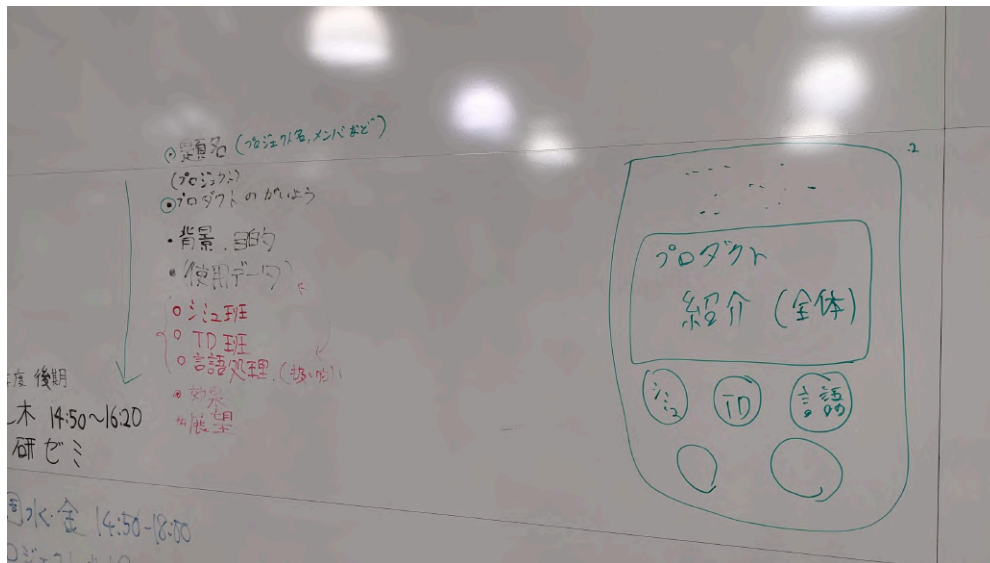 題名 (プロジェクト名,メンバなど)
(プロジェクト)
プロダクトのがいよう
・背景.目的
・(使用データ)
○シミュ班
○TD班
○言語処理.
・効果
展望
度 後期
木 14:50~16:20
研ゼミ
水・金 14:50-18:00
プロダクト
紹介 (全体)
シミュ
TD
言語